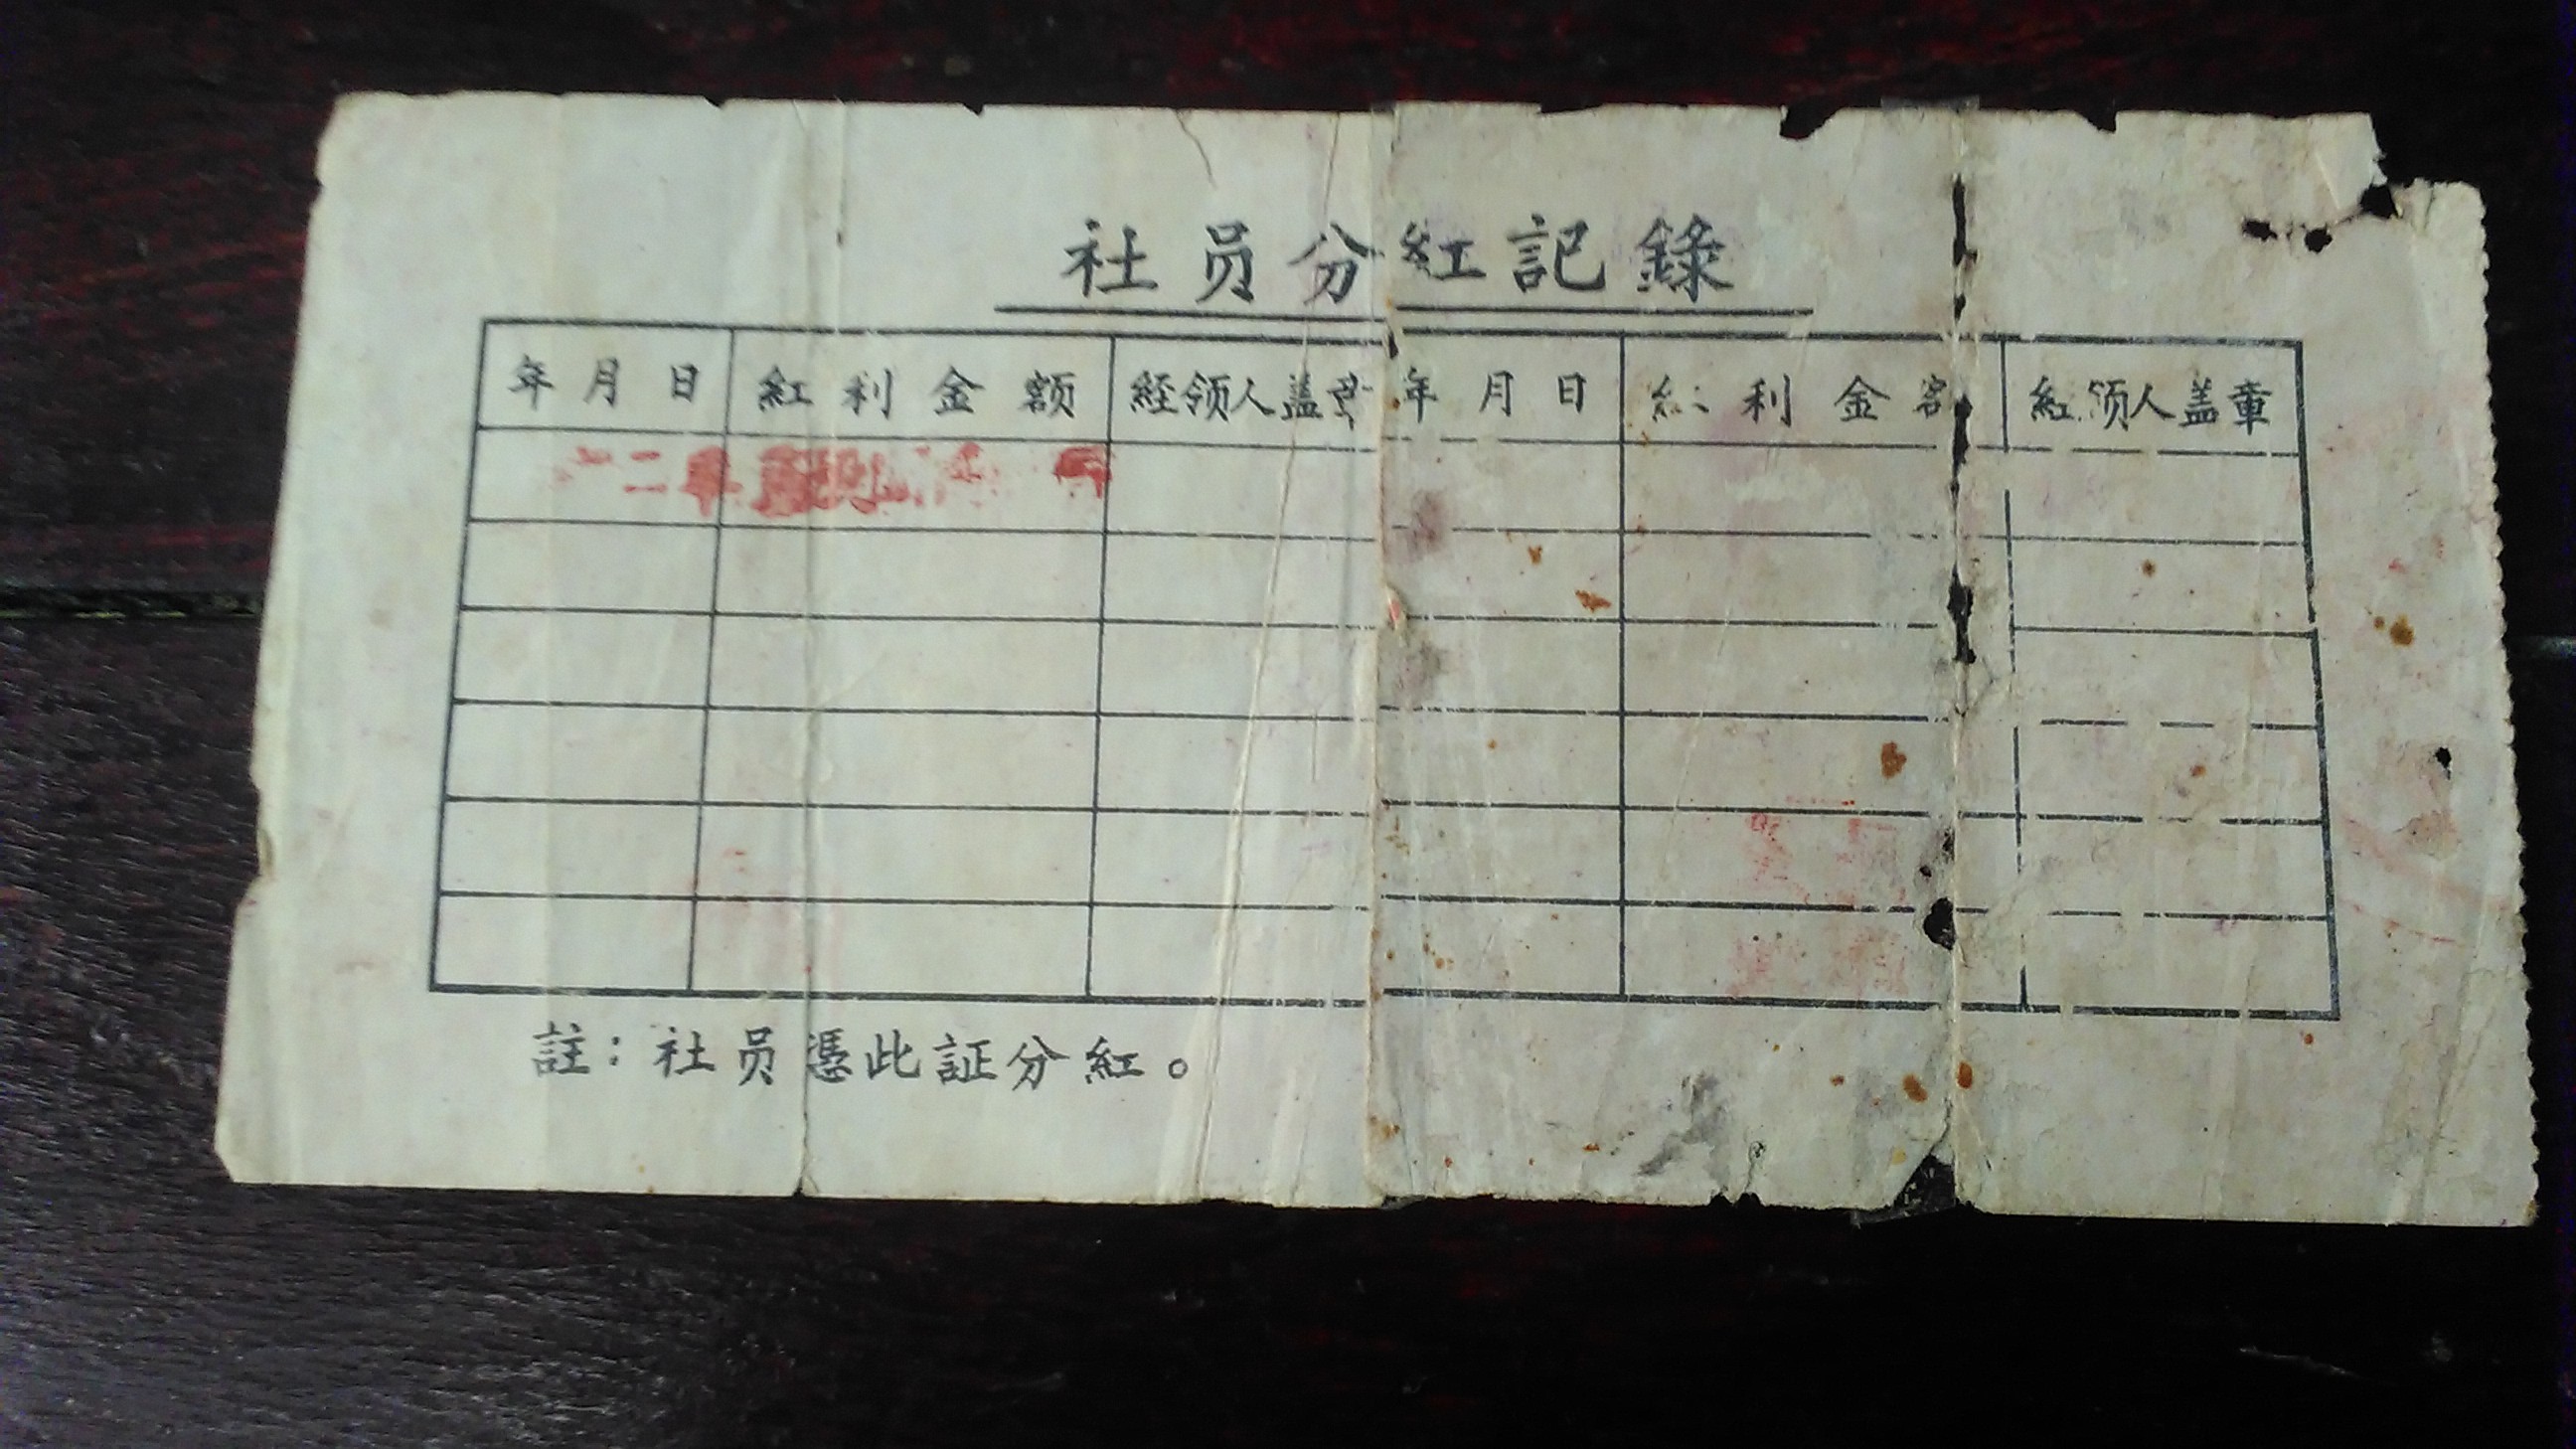 社员分紅記錄
年月日 紅利金额 経领人盖章 年月日 紅利金额 経领人盖章
二年
註：社员憑此証分紅。